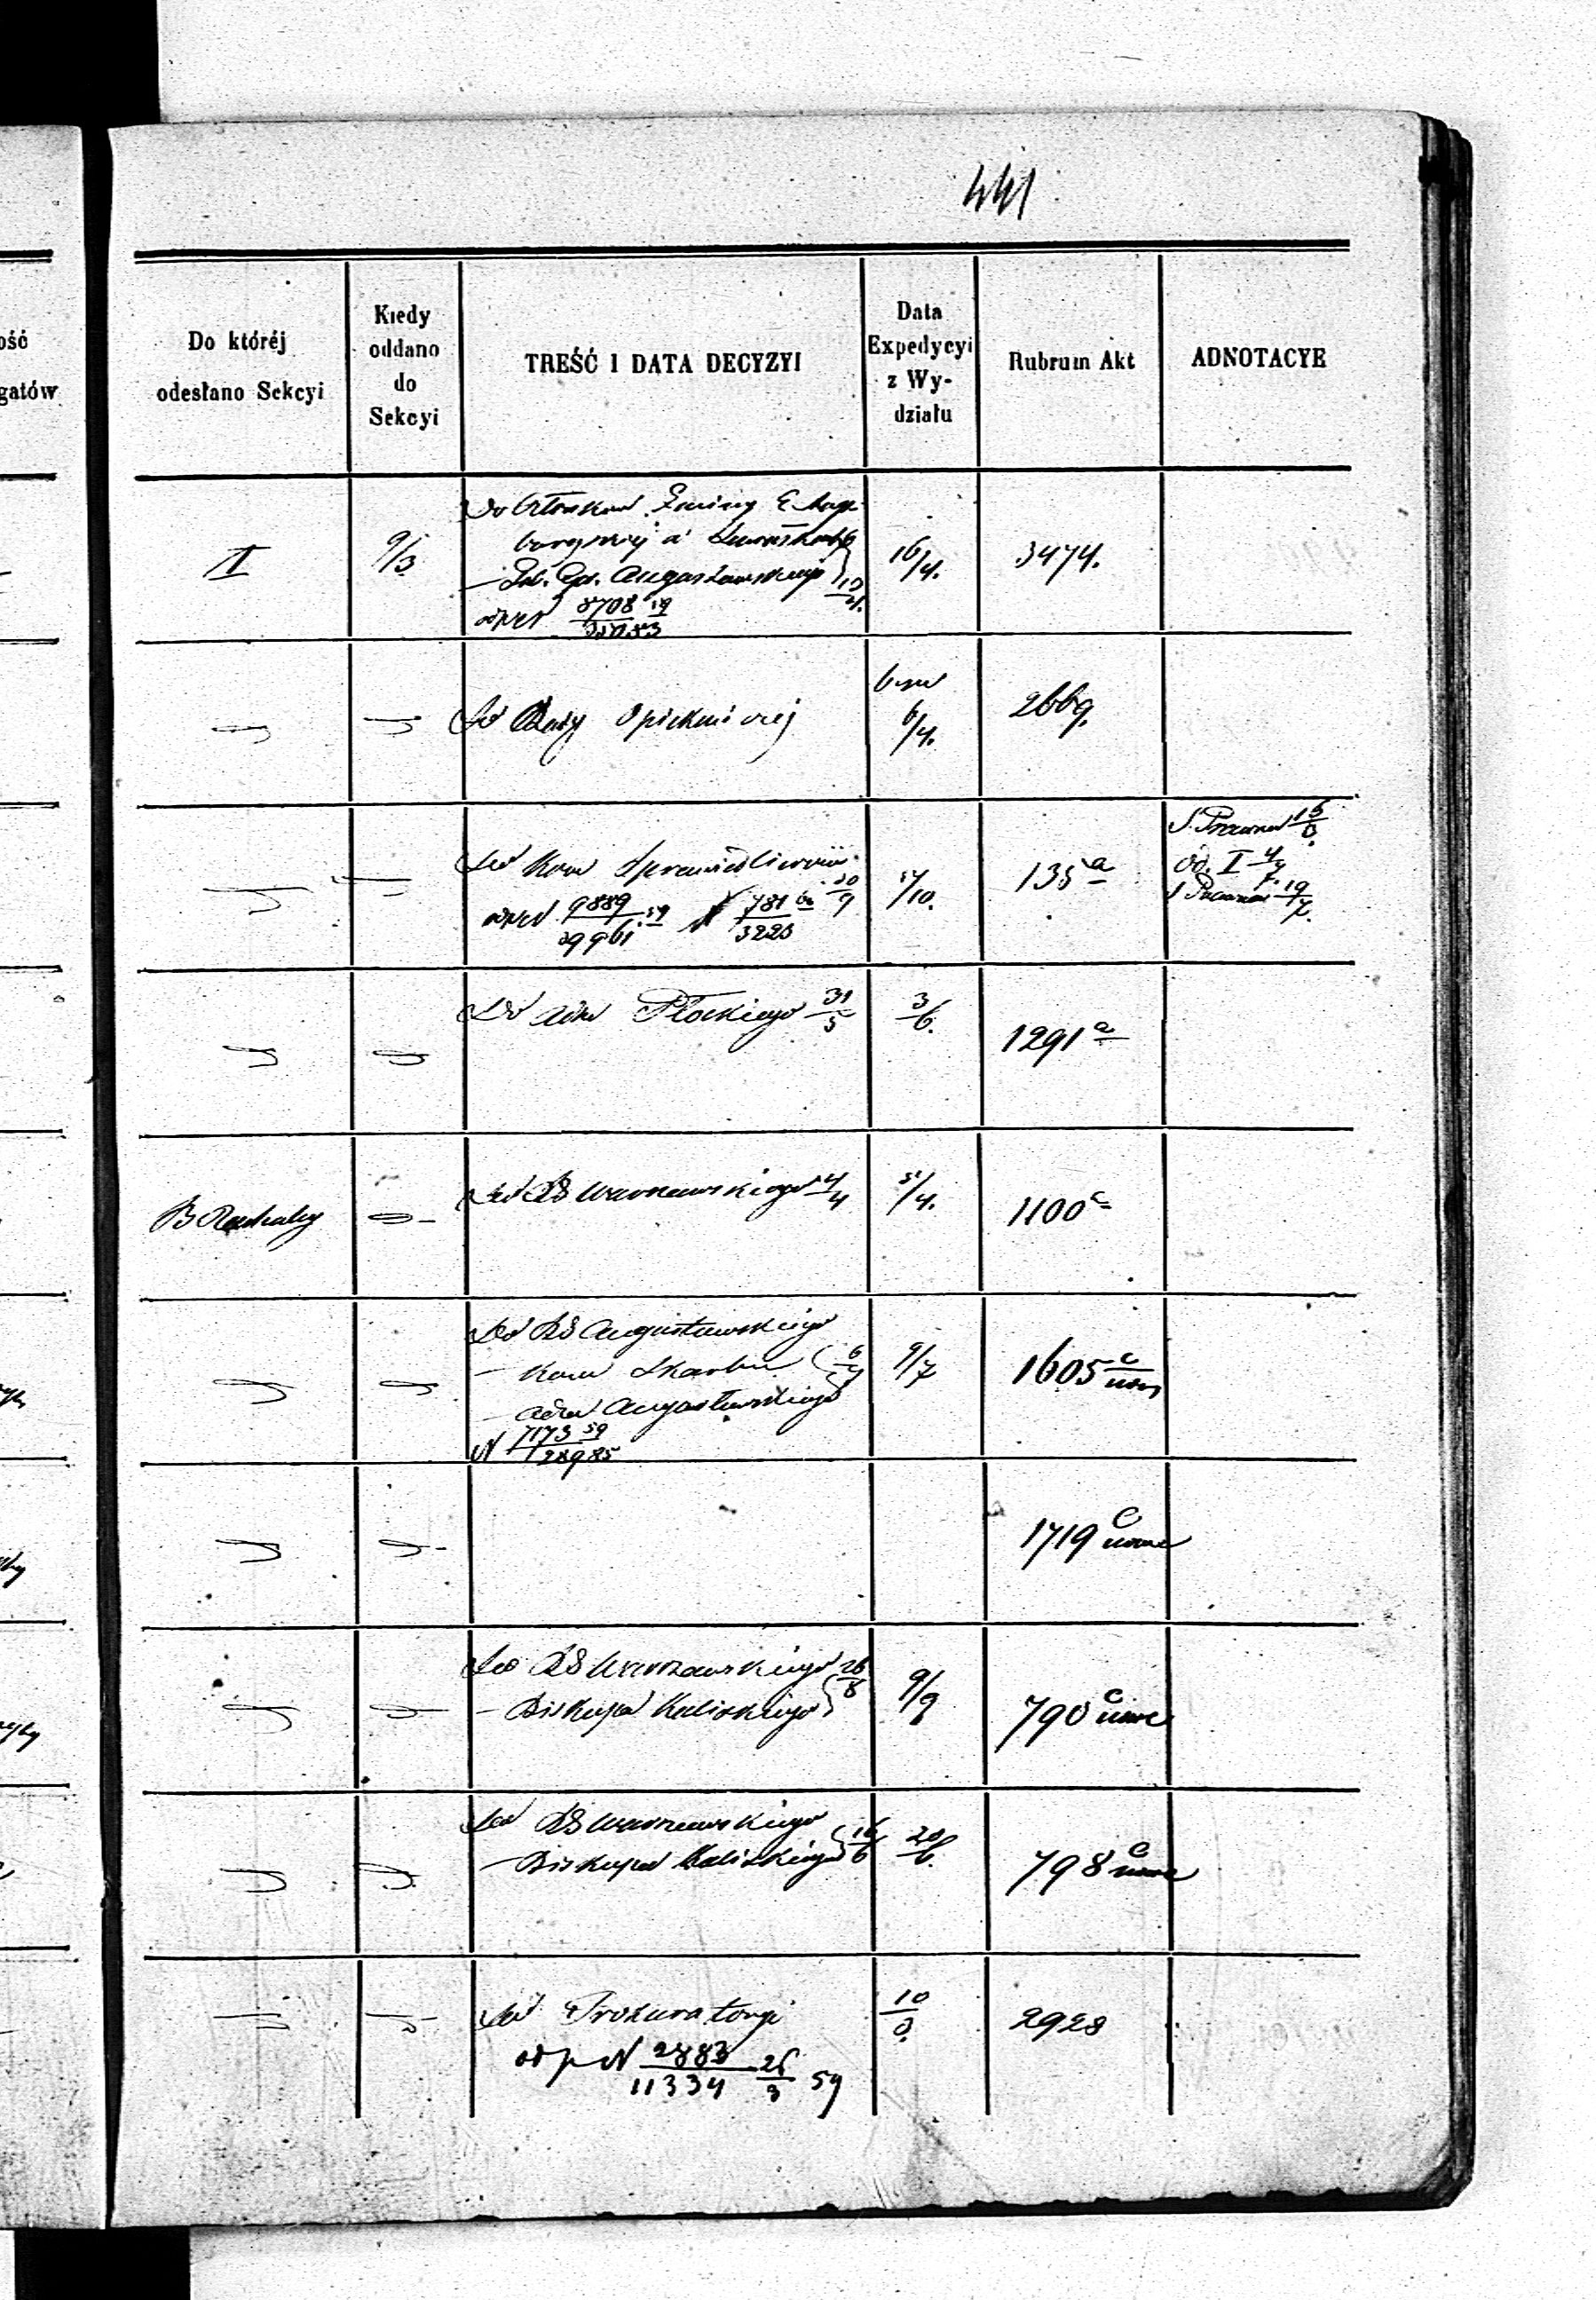 441
Do któréj
odesłano Sekcyi
Kiedy
oddano
do
Sekcyi
TREŚĆ I DATA DECYZYI
Data
Expedycyi
z Wy-
działu
Rubrum Akt
ADNOTACYE
II
9/3
Do Członków Gminy Ewang
Augustowskiego
8708 59
16/4.
3474.
Do Rady Opiekuńczej
6/4.
2669.
Do Kom Sprawiedliwości
9889 59 N 781 60
29961 3223
17/10.
135 a
S. Prawna
Od. I 4/7
S Prawna 19/7.
Do Adm Płockiego 31/5
3/6.
1291 a
B Rachuby
Do RG Warszawskiego 4/4
5/4.
1100 c
Do RG Augustowskiego
– Kom Skarbu
– Adm Augustowskiego
N 7173 59
28985
9/7
1605 c
1719 c nowe
Do RG Warszawskiego 26/8
– Biskupa Kaliskiego
9/9
790 c nowe
Do RG Warszawskiego
– Biskupa Kaliskiego 16/6
20/6.
798 c nowe
Do Prokuratoryi
odp N 2883 26/3 59
11334
2928